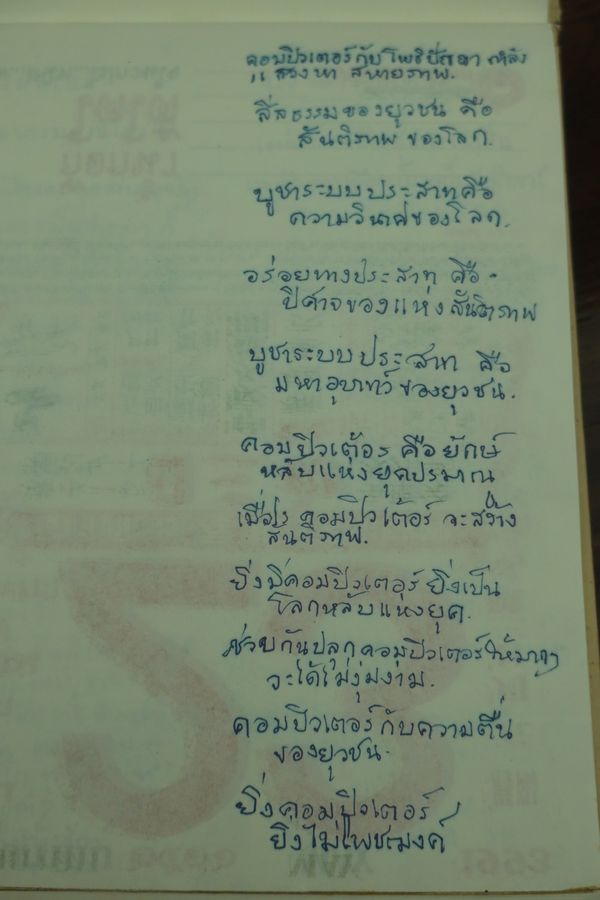 คอมปิวเตอร์กับโพธิปัญญา กำลัง
แสวงหา สหายภาพ.
ศีลธรรมของยุวชน คือ
สันติภาพ ของโลก.
บูชาระบบประสาทคือ
ความวินาศของโลก.
อร่อยทางประสาท คือ
ปีศาจของแห่งสันติภาพ
บูชาระบบประสาท คือ
มหาอุบาทว์ของยุวชน.
คอมปิวเต้อร คือยักษ์
หลับแห่งยุคปรมาณู
เมื่อไร คอมปิวเต้อร์ จะสร้าง
สันติภาพ.
ยิ่งมีคอมปิวเตอร์ ยิ่งเป็น
โลกหลับแห่งยุค.
ช่วยกันปลุกคอมปิวเตอร์ให้มากๆ
จะได้ไม่งุ่มง่าม.
คอมปิวเตอร์กับความตื่น
ของยุวชน.
ยิ่งคอมปิวเตอร์
ยิ่งไม่